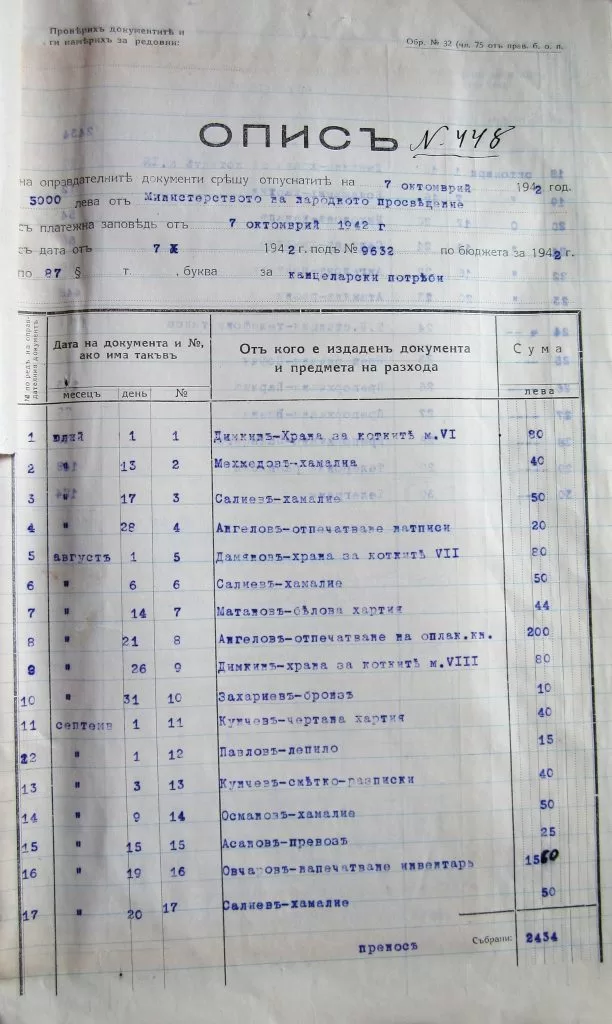 Провѣрихъ документитѣ и
ги намѣрихъ за редовни:
Обр. № 32 (чл. 75 отъ прав. б. о. п.
ОПИСЪ N. 448
на оправдателнитѣ документи срѣщу отпуснатитѣ на 7 октомврий 1942 год.
5000 лева отъ Министерството на народното просвѣщение
съ платежна заповѣдь отъ 7 октомврий 1942 г
съ дата отъ 7 X 1942 г. подъ № 9632 по бюджета за 1942 г.
по 27 § т. , буква за канцеларски потрѣби
№ по редъ на оправдателния документъ
Дата на документа и №, ако има такъвъ
Отъ кого е издаденъ документа и предмета на разхода
Сума
месецъ день № лева
1 юлий 1 1 Димкивъ-Храна за коткитѣ м.VI 80
2 " 13 2 Мехмедовъ-хамалиа 40
3 " 17 3 Салиевъ-хамалие 50
4 " 28 4 Ангеловъ-отпечатване натписи 20
5 августъ 1 5 Дамяновъ-храна за коткитѣ VII 80
6 " 6 6 Салиевъ-хамалие 50
7 " 14 7 Матановъ-бѣлова хартия 44
8 " 21 8 Ангеловъ-отпечатване на оплак.кн. 200
9 " 26 9 Димкинъ-храна за коткитѣ м.VIII 80
10 " 31 10 Захариевъ-бронзъ 10
11 септемв 1 11 Кунчевъ-чертана хартия 40
22 " 1 12 Павловъ-лепило 15
13 " 3 13 Кунчевъ-смѣтко-разписки 40
14 " 9 14 Османовъ-хамалие 50
15 " 15 15 Асановъ-превозъ 25
16 " 19 16 Овчаровъ-напечатване инвентарь 1560
17 " 20 17 Салиевъ-хамалие 50
преносъ Събрани: 2434